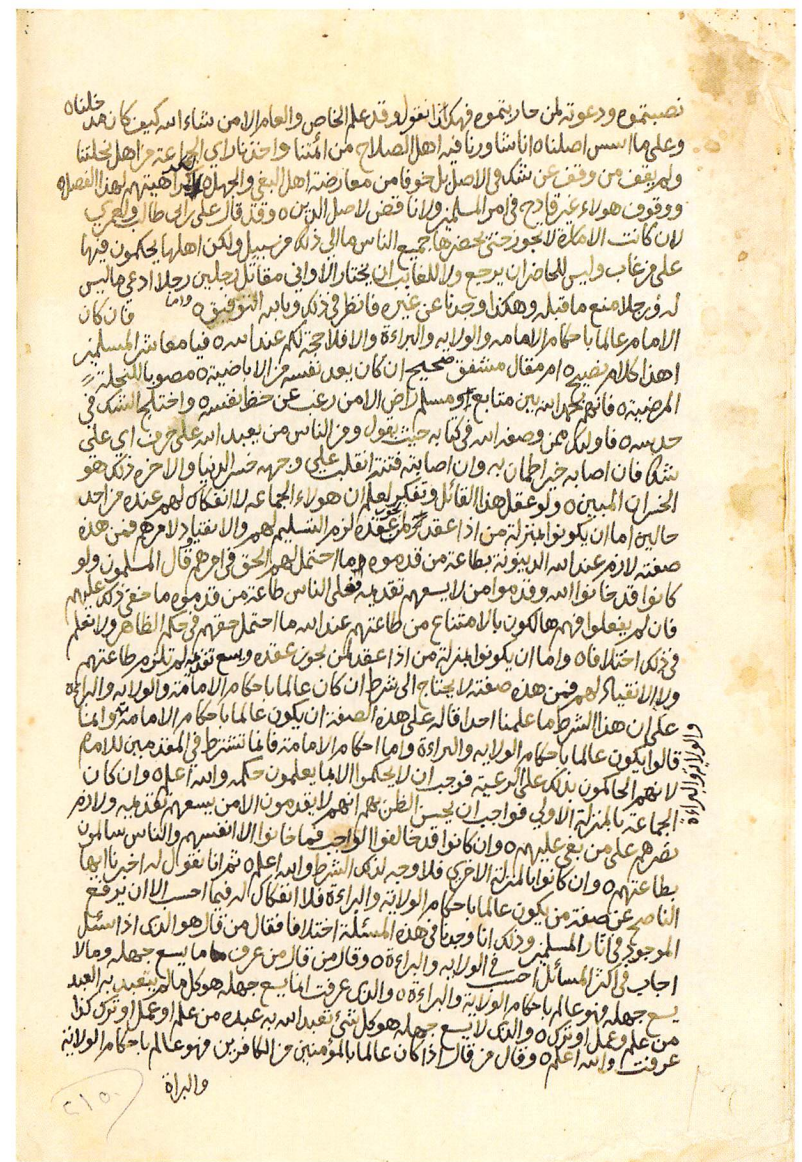 نصبتموه ودعوته لمن حاربتموه فهكذا نقول وقد علم الخاص والعام الا من شاء الله كيف كان مدخلناه
وعلى ما اسس اصلناه انا شاورنا فيه اهل الصلاح من ائمتنا واخذنا راي الجماعة من اهل نحلتنا
ولم يقف من وقف عن شك في الاصل بل خوفا من معارضة اهل البغي والجهل ه لكراهيتهم لهذا الفصل ه
ووقوف هولاء غير قادح في امر المسلمين ولا ناقض لاصل الدين ه وقد قال علي بن ابي طالب ولعمري
لان كانت الامامة لا تجوز حتى يحضرها جميع الناس ما الى ذلك من سبيل ولكن اهلها يحكمون فيها
على من غاب وليس للحاضر ان يرجع ولا للغايب ان يختار الا واني مقاتل رجلين رجلا ادعى ما ليس
له ورجلا منع ما قبله وهكذا وجدنا عن غيره فانظر في ذلك وبالله التوفيق ه واما فان كان
الامام عالما باحكام الامامه والولايه والبراءة والا فلا حجة لكم عند الله ه فيا معاشر المسلمين
اهذا كلام نصيح ه ام مقال مشفق صحيح ان كان يعد نفسه من الاباضية ه مصوبا للنحلة
المرضية ه فانهم بحمد الله بين متابع او مسلم راض الا من رغب عن حظ نفسه ه واختلج الشك في
حدسه ه فاوليك ممن وصفه الله في كتابه حيث يقول ومن الناس من يعبد الله على حرف اي على
شك فان اصابه خير اطمان به وان اصابته فتنة انقلب على وجهه خسر الدنيا والاخره ذلك هو
الخسران المبين ه ولو عقل هذا القائل وتفكر لعلم ان هولاء الجماعه لا انفكاك لهم عنده من احد
حالين اما ان يكونوا بمنزلة من اذا عقد لمن عقده لزم التسليم لهم والانقياد لامرهم فمن هذه
صفته لازم عند الله الدينونة بطاعة من قدموه وما احتمل لهم الحق في امرهم قال المسلمون ولو
كانوا قد خانوا الله وقدموا من لا يسعهم تقديمه فعلى الناس طاعة من قدموه ما خفي ذلك عليهم
فان لم يفعلوا فهم هالكون بالامتناع من طاعتهم عند الله ما احتمل حقهم في حكم الظاهر ولا نعلم
في ذلك اختلافا ه واما ان يكونوا بمنزلة من اذا عقد لمن يجوز عقده ويسع تقديمه لم تلزم طاعتهم
ولا الانقياد لهم فمن هذه صفته لا يحتاج الى شرط ان كان عالما باحكام الامامة والولايه والبراءة
على ان هذا الشرط ما علمنا احدا قاله على هذه الصفة ان يكون عالما باحكام الامامة وانما
قالوا يكون عالما باحكام الولايه والبراءة واما احكام الامامة فانما تشترط في المقدمين للامام
لانهم الحاكمون بذلك على الرعية فوجب ان لا يحكموا الا بما يعلمون حكمه والله اعلم ه وان كان
الجماعة بالمنزلة الاولى فواجب ان يحسن الظن بهم انهم لا يقدمون الا من يسعهم تقديمه ولازم
نصرهم على من بغى عليهم ه وان كانوا قد خالفوا الواجب فما خانوا الا انفسهم والناس سالمون
بطاعتهم ه وان كانوا بالمنزلة الاخرى فلا وجه لذلك الشرط والله اعلم ه ثم انا نقول له اخبرنا ايها
الناصح عن صفة من يكون عالما باحكام الولاية والبراءة فلا انفكاك له فيما احسب الا ان يرفع
الموجود في اثار المسلمين وذلك انا وجدنا في هذه المسئلة اختلافا فقال من قال هو الذي اذا سئل
اجاب في اكثر المسائل احسب في الولايه والبراءة ه وقال من قال من عرف ما يسع جهله وما لا
يسع جهله فهو عالم باحكام الولاية والبراءة ه والذي عرفت انما يسع جهله هو كل ما لم يتعبد به العبد
من علم وعمل او ترك ه والذي لا يسع جهله هو كل شئ تعبد الله به عبده من علم او عمل او ترك كذا
عرفت والله اعلم ه وقال من قال اذا كان عالما بالمؤمنين من الكافرين فهو عالم باحكام الولاية
والبراة
والولاية والبراءة